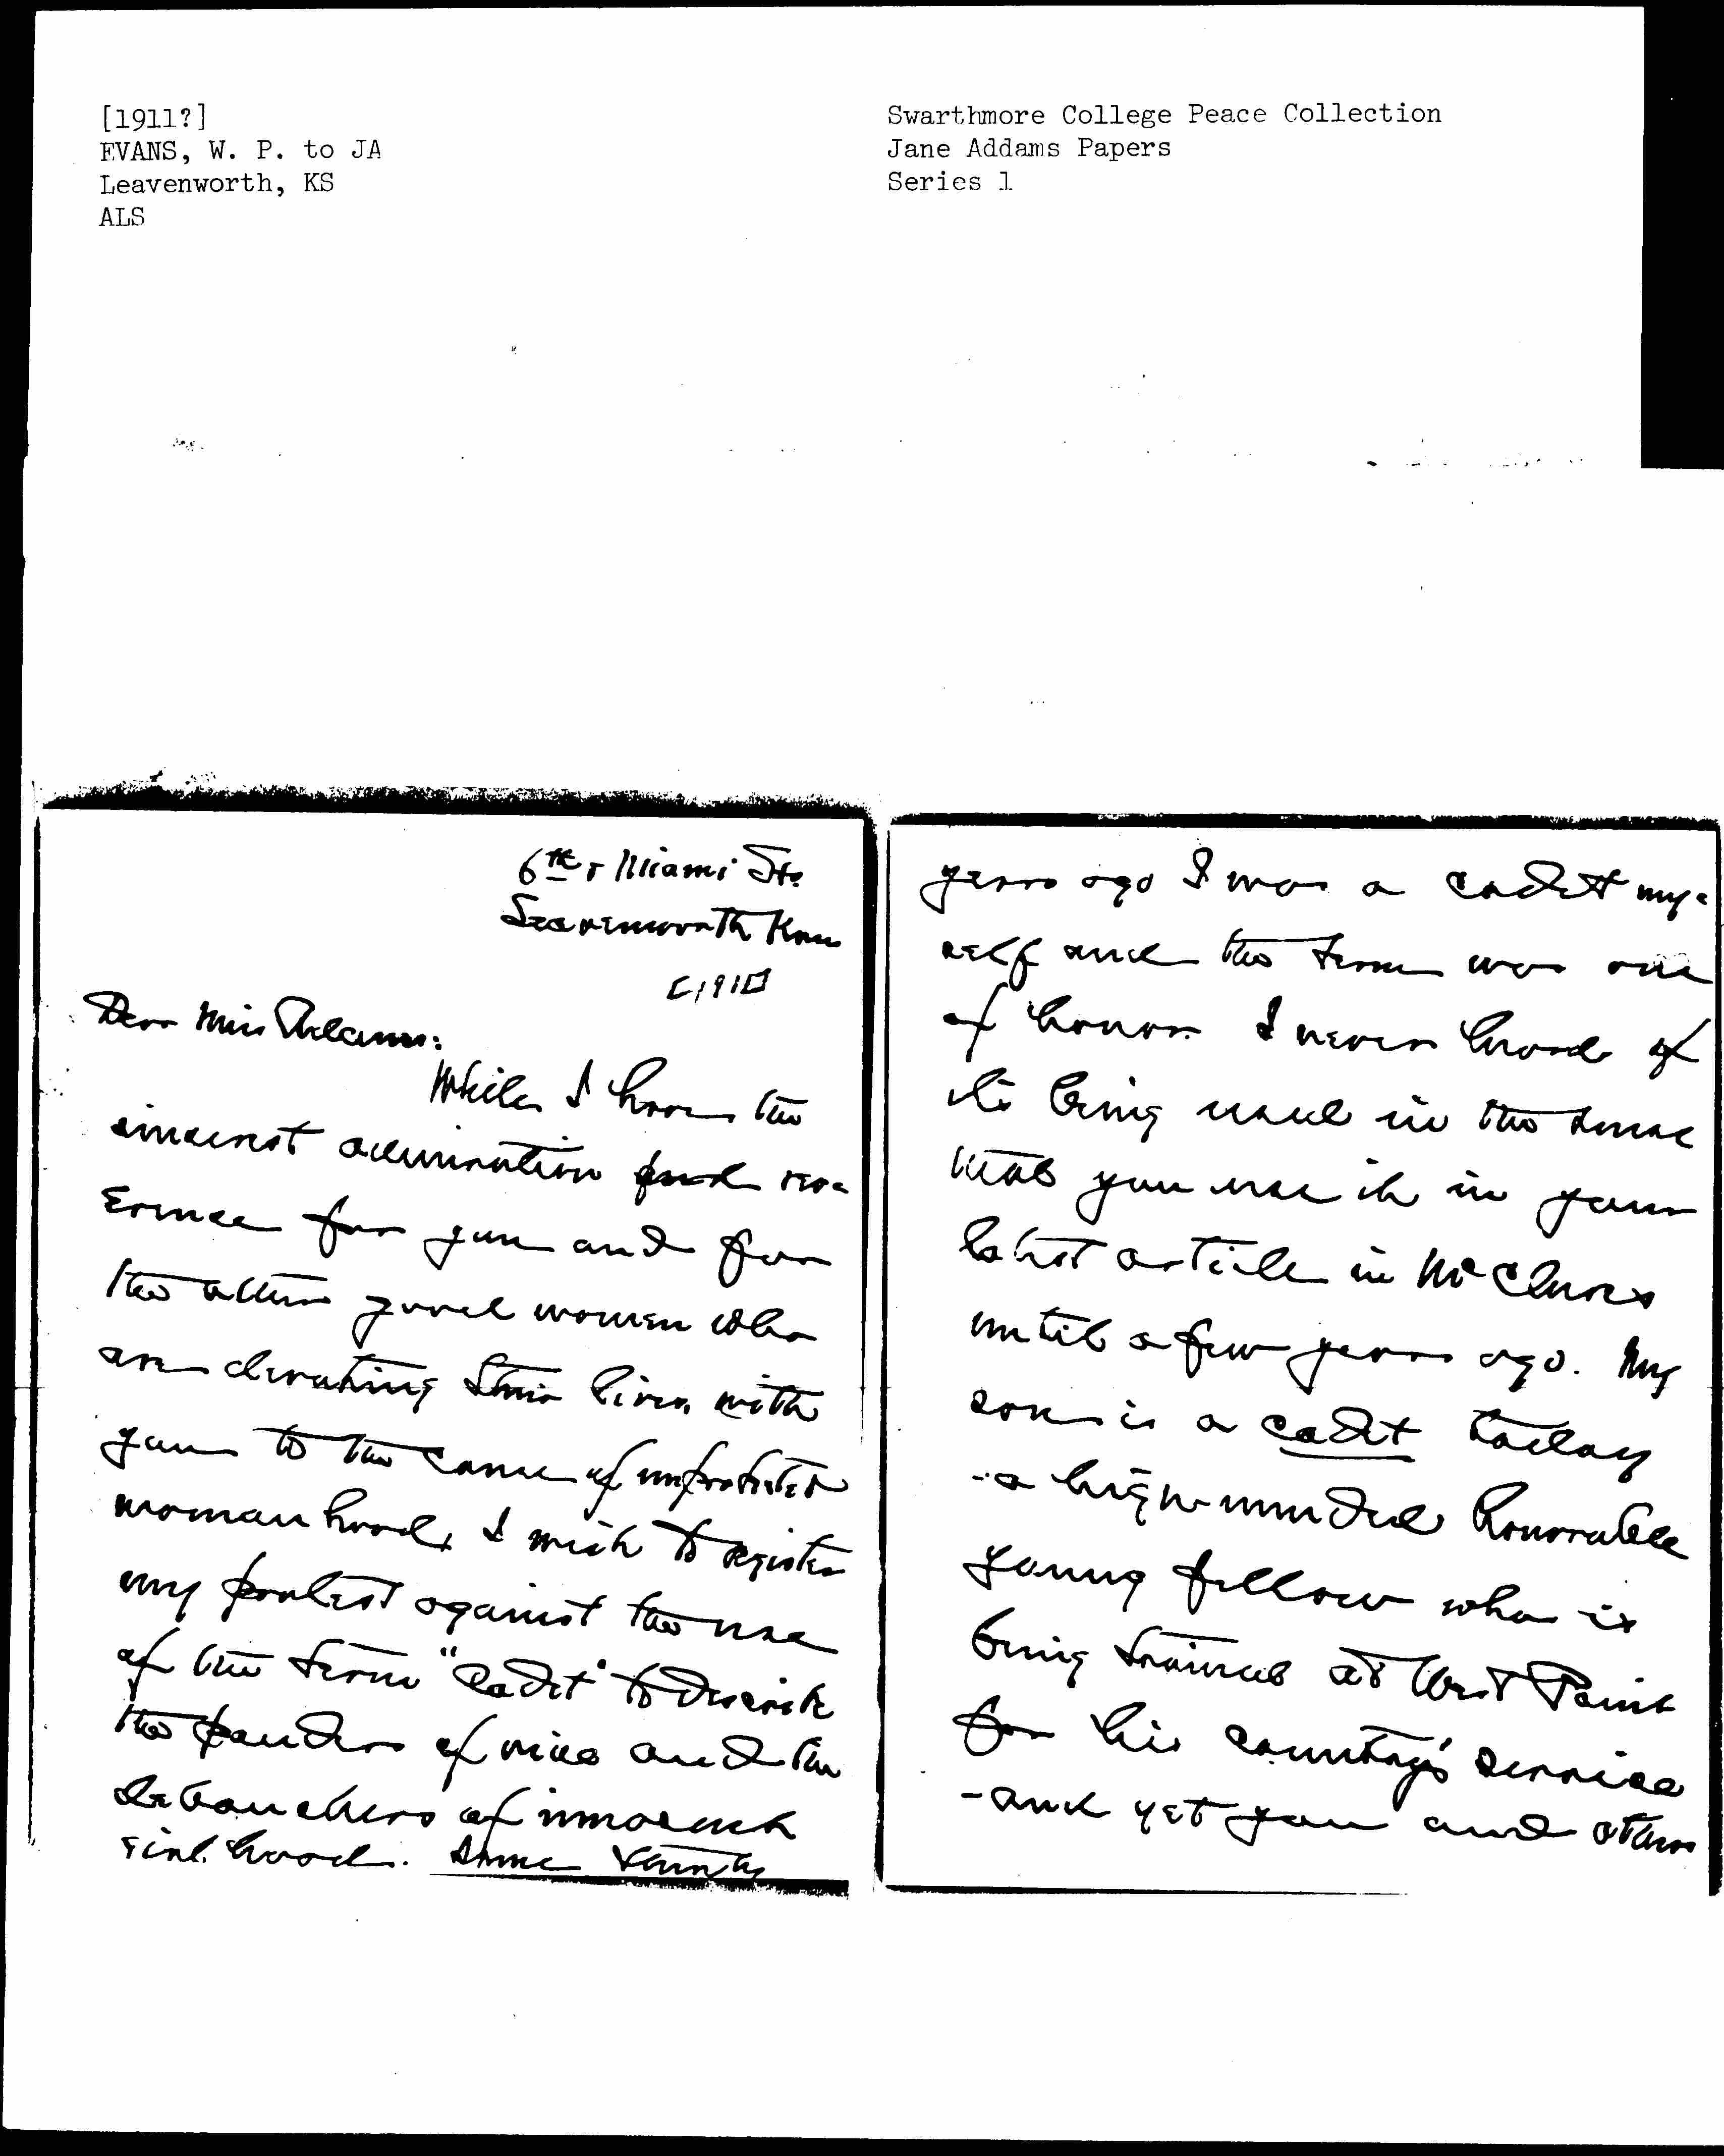 [1911?]
EVANS, W. P. to JA
Leavenworth, KS
ALS
Swarthmore College Peace Collection
Jane Addams Papers
Series 1
6th & Miami Sts
Leavenworth Kans
[191]
Dear Miss Addams:
While I have the
sincerest admiration and rev-
erence for you and for
the other good women who
are devoting their lives with
you to the cause of unprotected
womanhood, I wish to register
my protest against the use
of the term "Cadet" to describe
the pander of vice and the
debauchers of innocent
girl hood. Some twenty
years ago I was a cadet my-
self and the term was one
of honor. I never heard of
its being used in the sense
that you use it in your
latest article in McClures
until a few years ago. My
son is a cadet today
- a high-minded honorable
young fellow who is
being trained at West Point
for his country's service
- and yet you and others